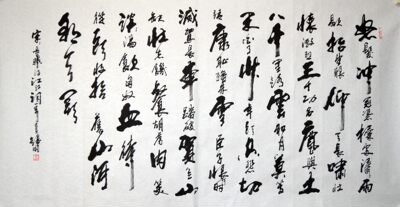 怒髮冲冠憑欄處瀟瀟雨
歇抬望眼仰天長嘯壯
懷激烈三十功名塵與土
八千里路雲和月莫等
閒白了少年頭空悲切
靖康恥猶未雪臣子恨何時
滅駕長車踏破賀蘭山
缺壯志飢餐胡虜肉笑
談渴飲匈奴血待
從頭收拾舊山河
朝天闕
宋岳飛滿江紅詞